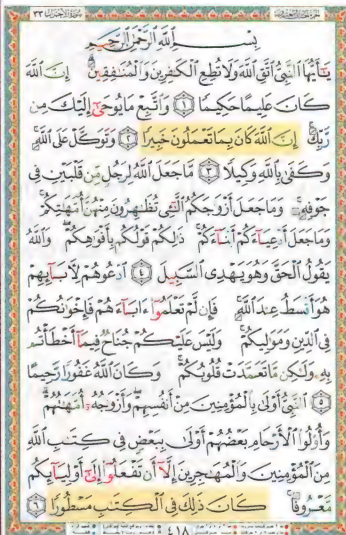 سورة الأحزاب ٣٣
بِسْمِ اللَّهِ الرَّحْمَٰنِ الرَّحِيمِ
يَٰٓأَيُّهَا ٱلنَّبِىُّ ٱتَّقِ ٱللَّهَ وَلَا تُطِعِ ٱلْكَٰفِرِينَ وَٱلْمُنَٰفِقِينَ ۗ إِنَّ ٱللَّهَ
كَانَ عَلِيمًا حَكِيمًا ١ وَٱتَّبِعْ مَا يُوحَىٰٓ إِلَيْكَ مِن
رَّبِّكَ ۚ إِنَّ ٱللَّهَ كَانَ بِمَا تَعْمَلُونَ خَبِيرًا ٢ وَتَوَكَّلْ عَلَى ٱللَّهِ ۚ
وَكَفَىٰ بِٱللَّهِ وَكِيلًا ٣ مَّا جَعَلَ ٱللَّهُ لِرَجُلٍ مِّن قَلْبَيْنِ فِى
جَوْفِهِۦ ۚ وَمَا جَعَلَ أَزْوَٰجَكُمُ ٱلَّٰٓـِٔى تُظَٰهِرُونَ مِنْهُنَّ أُمَّهَٰتِكُمْ ۚ
وَمَا جَعَلَ أَدْعِيَآءَكُمْ أَبْنَآءَكُمْ ۚ ذَٰلِكُمْ قَوْلُكُم بِأَفْوَٰهِكُمْ ۖ وَٱللَّهُ
يَقُولُ ٱلْحَقَّ وَهُوَ يَهْدِى ٱلسَّبِيلَ ٤ ٱدْعُوهُمْ لِءَابَآئِهِمْ
هُوَ أَقْسَطُ عِندَ ٱللَّهِ ۚ فَإِن لَّمْ تَعْلَمُوٓا۟ ءَابَآءَهُمْ فَإِخْوَٰنُكُمْ
فِى ٱلدِّينِ وَمَوَٰلِيكُمْ ۚ وَلَيْسَ عَلَيْكُمْ جُنَاحٌ فِيمَآ أَخْطَأْتُم
بِهِۦ وَلَٰكِن مَّا تَعَمَّدَتْ قُلُوبُكُمْ ۚ وَكَانَ ٱللَّهُ غَفُورًا رَّحِيمًا
٥ ٱلنَّبِىُّ أَوْلَىٰ بِٱلْمُؤْمِنِينَ مِنْ أَنفُسِهِمْ ۖ وَأَزْوَٰجُهُۥٓ أُمَّهَٰتُهُمْ ۗ
وَأُو۟لُوا۟ ٱلْأَرْحَامِ بَعْضُهُمْ أَوْلَىٰ بِبَعْضٍ فِى كِتَٰبِ ٱللَّهِ
مِنَ ٱلْمُؤْمِنِينَ وَٱلْمُهَٰجِرِينَ إِلَّآ أَن تَفْعَلُوٓا۟ إِلَىٰٓ أَوْلِيَآئِكُم
مَّعْرُوفًا ۚ كَانَ ذَٰلِكَ فِى ٱلْكِتَٰبِ مَسْطُورًا ٦
٤١٨